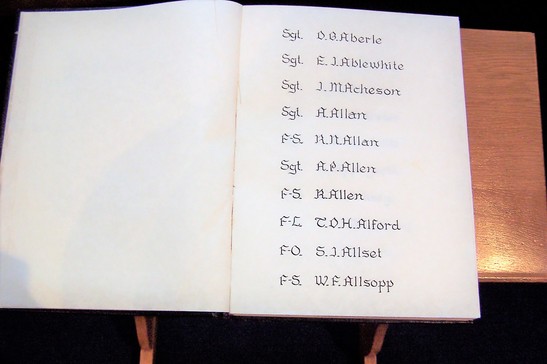 Sgt. D.G.Aberle
Sgt. E.J.Ablewhite
Sgt. J.McAcheson
Sgt. A.Allan
F-S. H.N.Allan
Sgt A.P.Allen
F-S. R.Allen
F-L. T.D.H.Alford
F-O. S.J.Allset
F-S. W.F.Allsopp